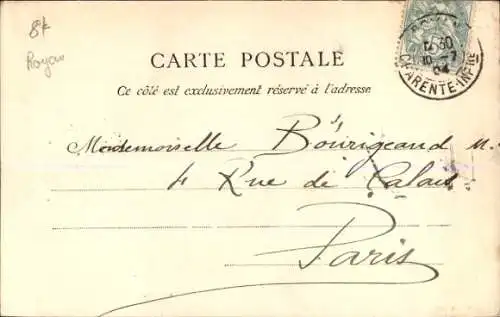 8k
Royan
CARTE POSTALE
Ce côté est exclusivement réservé à l'adresse
12 30
10 -7
04
CHARENTE-INFRE
Mademoiselle Bourigeaud M.
4 Rue de Calais
Paris